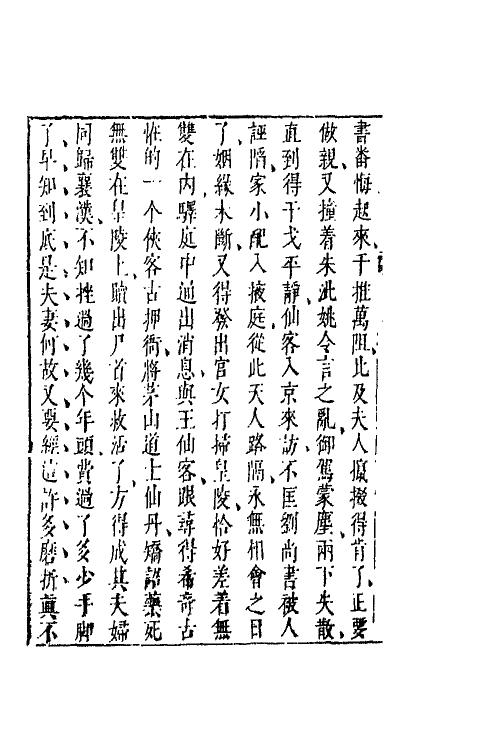 書番悔起來千推萬阻此及夫人攛掇得肯了正要
做親又撞着朱泚姚令言之亂御駕蒙塵兩下失散
直到得干戈平靜仙客入京來訪不匡劉尚書被人
誣陷家小配入掖庭從此天人路隔永無相會之日
了姻緣未斷又得發出宮女打掃皇陵恰好差着無
雙在內驛庭中通出消息與王仙客跟尋得希奇古
怪的一个俠客古押衙將茅山道士仙丹矯詔藥死
無雙在皇陵上贖出尸首來救活了方得成其夫婦
同歸襄漢不知挫過了幾个年頭費過了多少手脚
了早知到底是夫妻何故又要經這許多磨折真不